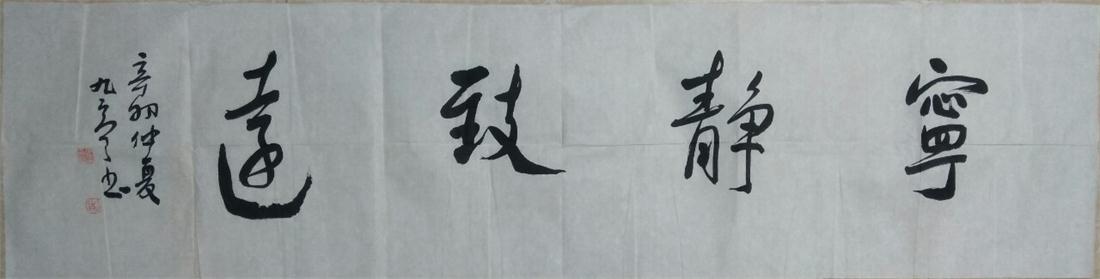 寧靜致遠
辛卯仲夏
九亭书